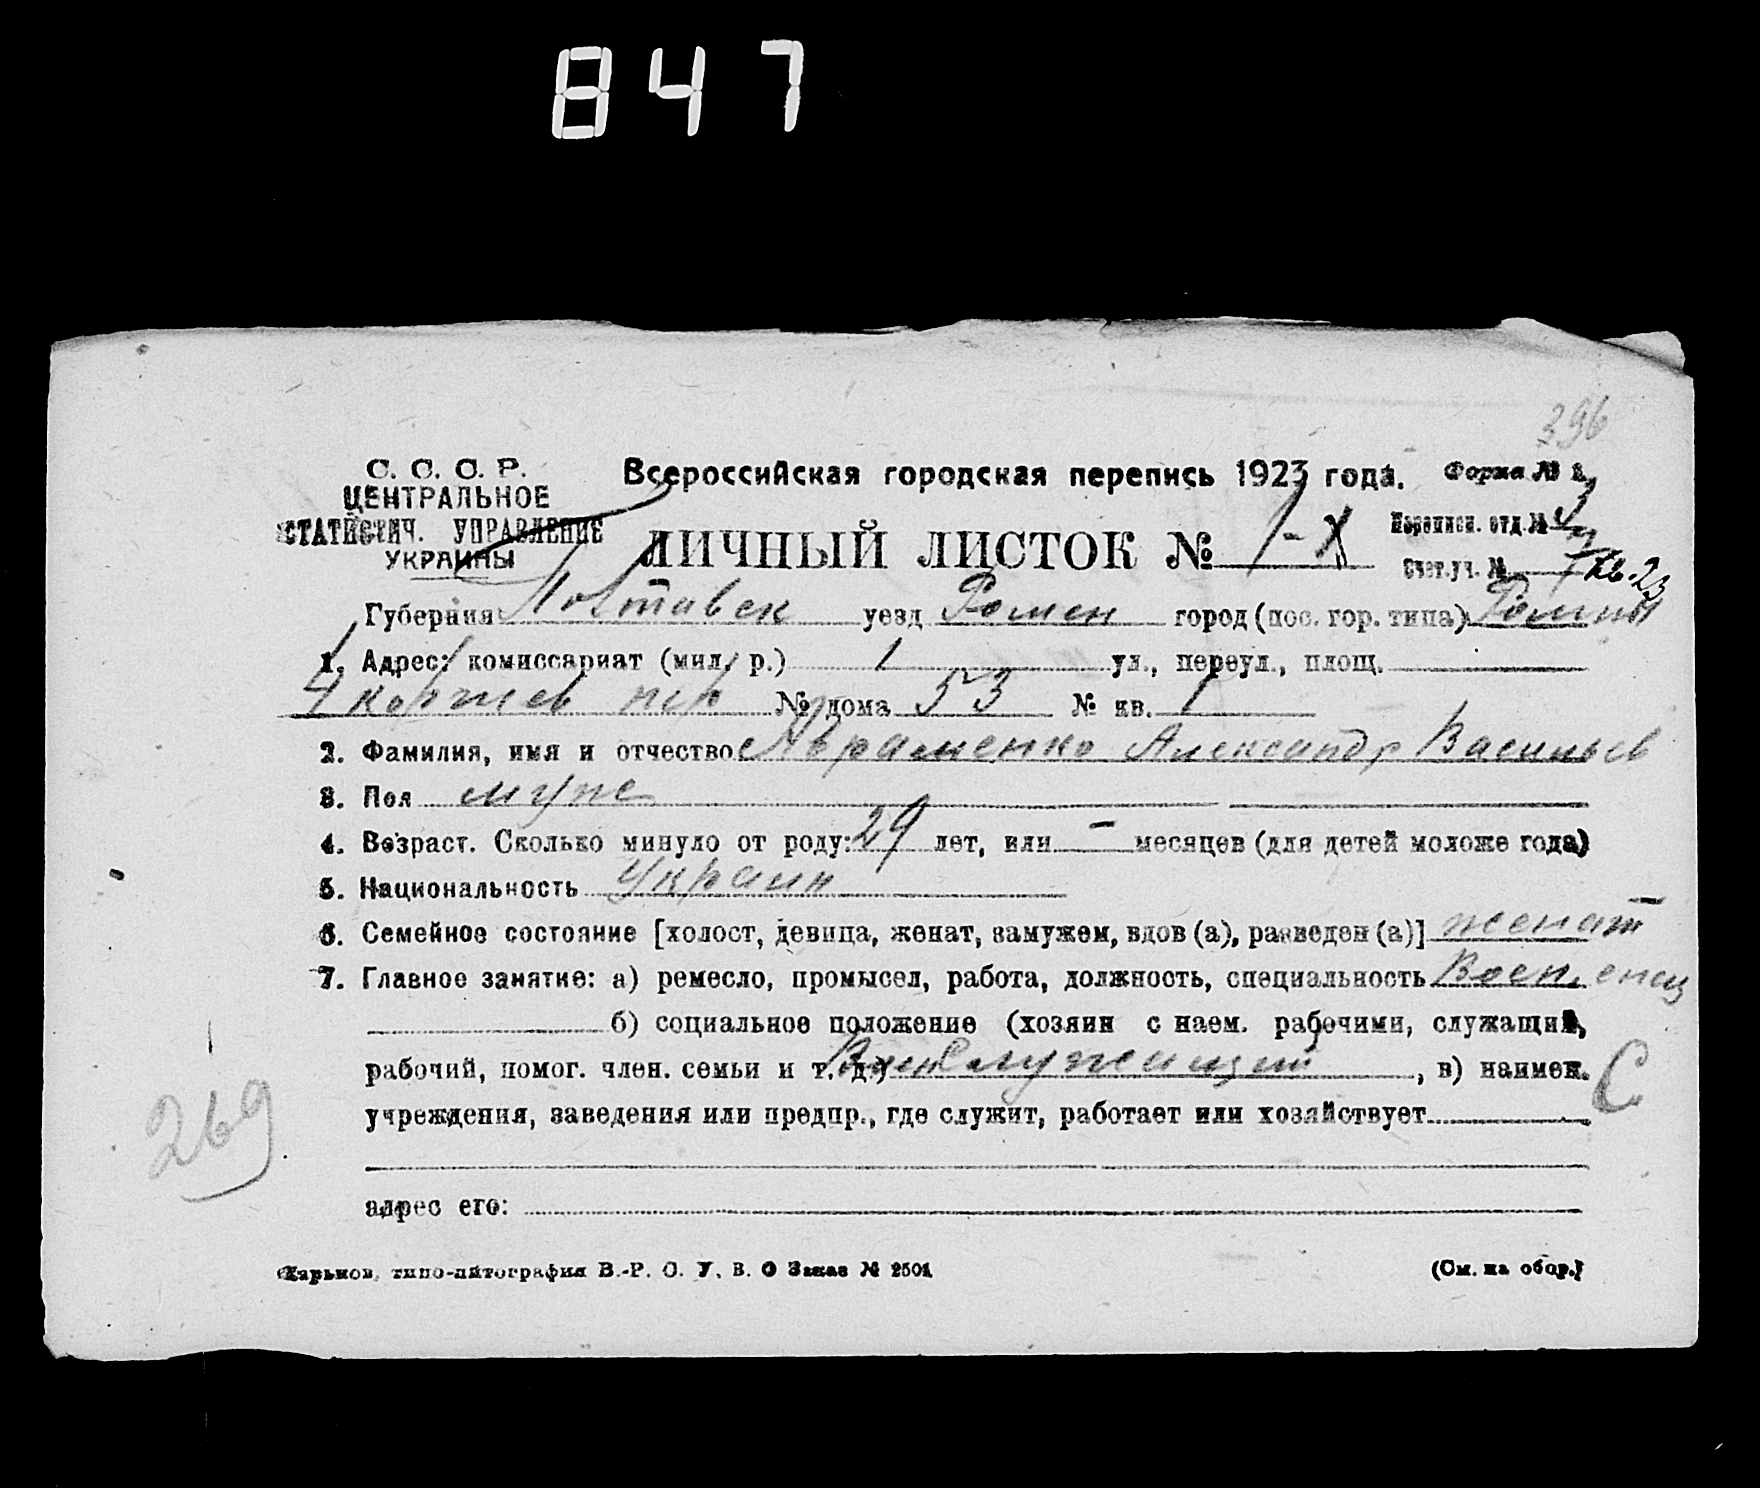 847
396
С. С. С. Р. Всероссийская городская перепись 1923 года. Форма № 1,
ЦЕНТРАЛЬНОЕ
СТАТИСТИЧ. УПРАВЛЕНИЕ
УКРАИНЫ
ЛИЧНЫЙ ЛИСТОК №
Переписн. отд. №
Счет. уч. № кв. 23
Губерния Полтавск уезд Ромен город (пос. гор. типа) Ромны
1. Адрес: комиссариат (мил. р.) 1 ул., переул., площ.
4 Коржев пер № дома 53 № кв. 1
2. Фамилия, имя и отчество Авраменко Александр Васильев
3. Пол муж
4. Возраст. Сколько минуло от роду: 29 лет, или – месяцев (для детей моложе года)
5. Национальность Украин
6. Семейное состояние [холост, девица, женат, замужем, вдов (а), разведен (а)] женат
7. Главное занятие: а) ремесло, промысел, работа, должность, специальность
б) социальное положение (хозяин с наем. рабочими, служащий,
рабочий, помог. член. семьи и т. д.) служащий, в) наимен. С
учреждения, заведения или предпр., где служит, работает или хозяйствует
269
адрес его:
Харьков, типо-литография В.-Р. О. У. В. О Заказ № 2501 (См. на обор.)